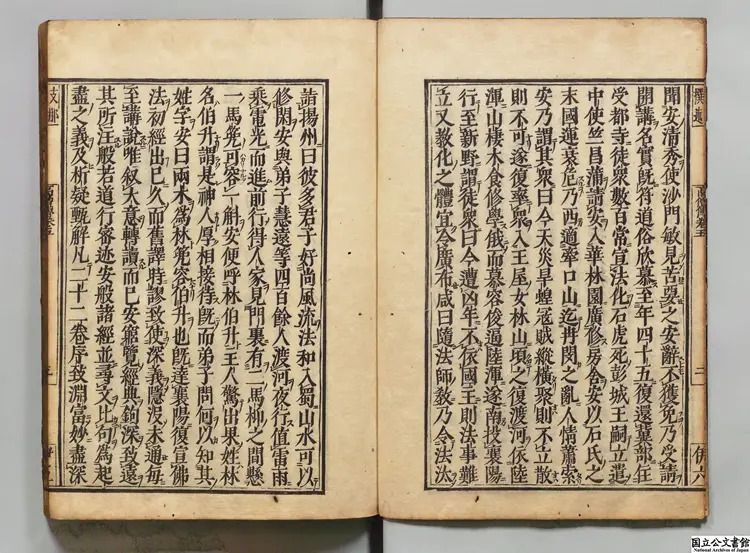 撰述　高僧傳卷五　二　伊六
聞安清秀使沙門敏見苦要之安辭不獲免乃受請
開講名實既符道俗欣慕至年四十五復還冀部住
受都寺徒衆數百常宣法化石虎死彭城王嗣立遣
中使竺昌蒲請安入華林園廣修房舍安以石氏之
末國運衰危乃西適牽口山迄冉閔之亂人情蕭索
安乃謂其衆曰今天災旱蝗寇賊縱橫聚則不立散
則不可遂復率衆入王屋女林山頃之復渡河依陸
渾山棲木食修學俄而慕容俊逼陸渾遂南投襄陽
行至新野謂徒衆曰今遭凶年不依國主則法事難
立又教化之體宜令廣布咸曰隨法師教乃令法汰
詣揚州曰彼多君子好尚風流法和入蜀山水可以
修閑安與弟子慧遠等四百餘人渡河夜行值雷雨
乘電光而進前行得人家見門裏有二馬柳之間懸
一馬篼可容一斛安便呼林伯升主人驚出果姓林
名伯升謂是神人厚相接待既而弟子問何以知其
姓字安曰兩木爲林篼容伯升也既達襄陽復宣佛
法初經出已久而舊譯時謬致使深義隱沒未通每
至講說唯叙大意轉讀而已安窮覽經典鉤深致遠
其所注般若道行密迹安般諸經並尋文比句爲起
盡之義及析疑甄解凡二十二卷序致淵富妙盡深
支那
国立公文書館
National Archives of Japan